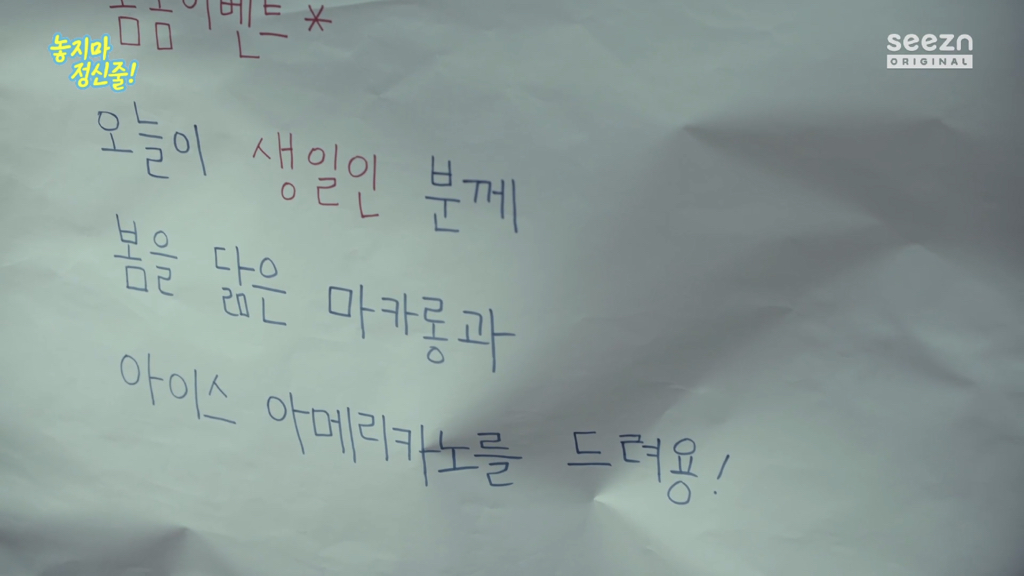 봄봄이벤트 *
놓지마
정신줄!
seezn
ORIGINAL
오늘이 생일인 분께
봄을 닮은 마카롱과
아이스 아메리카노를 드려용!